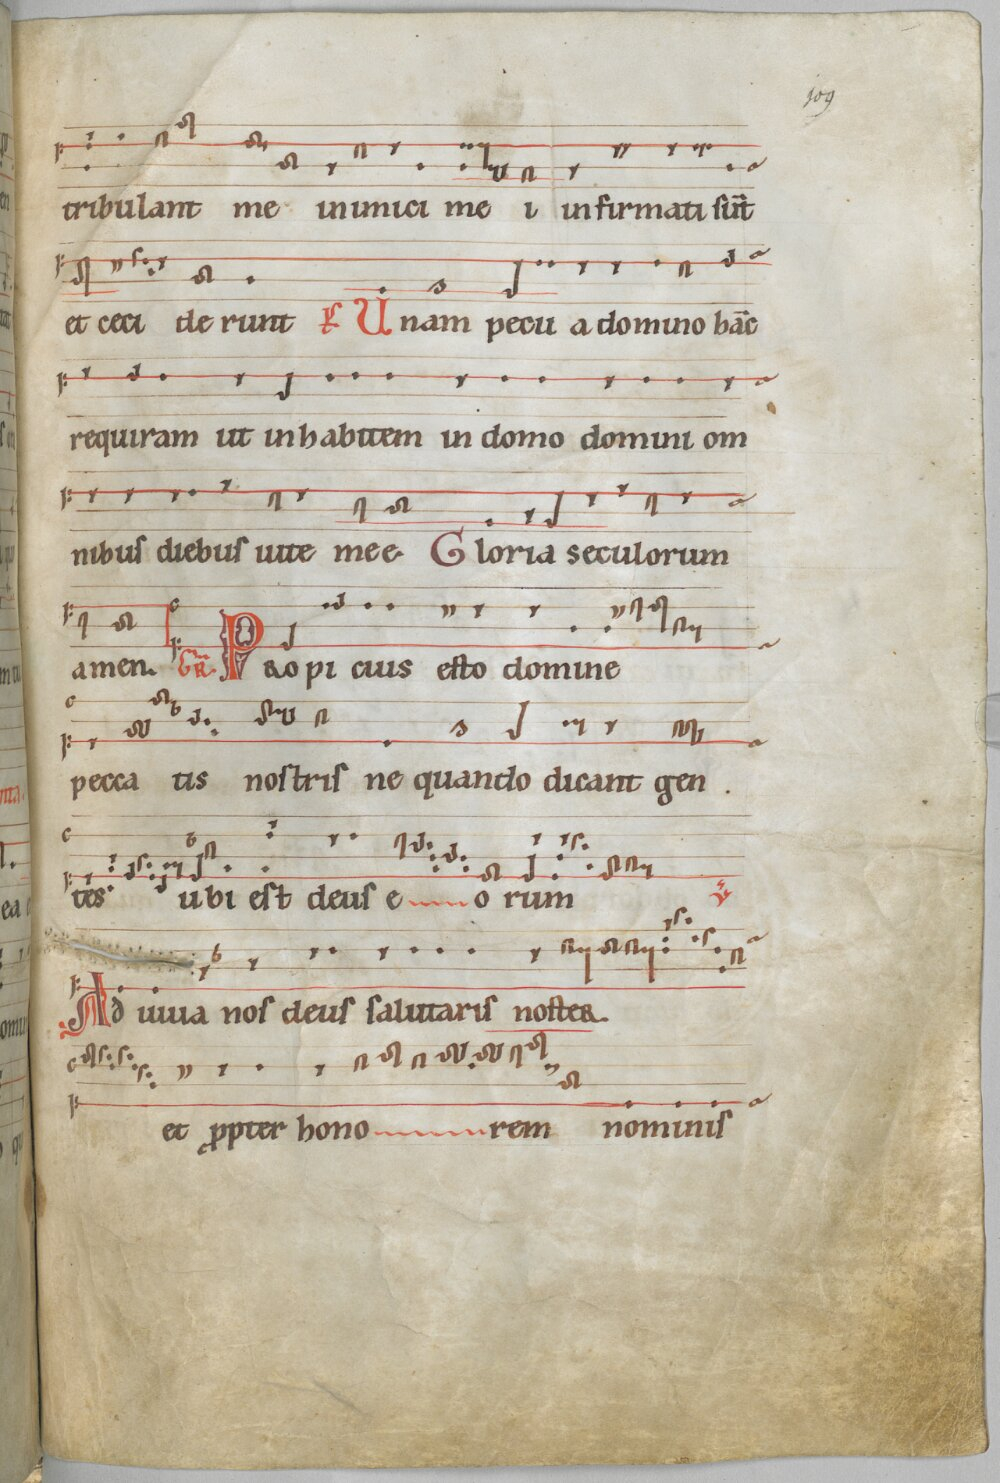 109
tribulant me inimici me i infirmati sūt
et ceci derunt Unam pecii a domino hāc
requiram ut inhabitem in domo domini om
nibus diebus uite mee Gloria seculorum
amen. GR. PRopi cius esto domine
pecca tis nostris ne quando dicant gen
tes ubi est deus e o rum
Ad iuua nos deus salutaris noster.
et ppter hono rem nominis